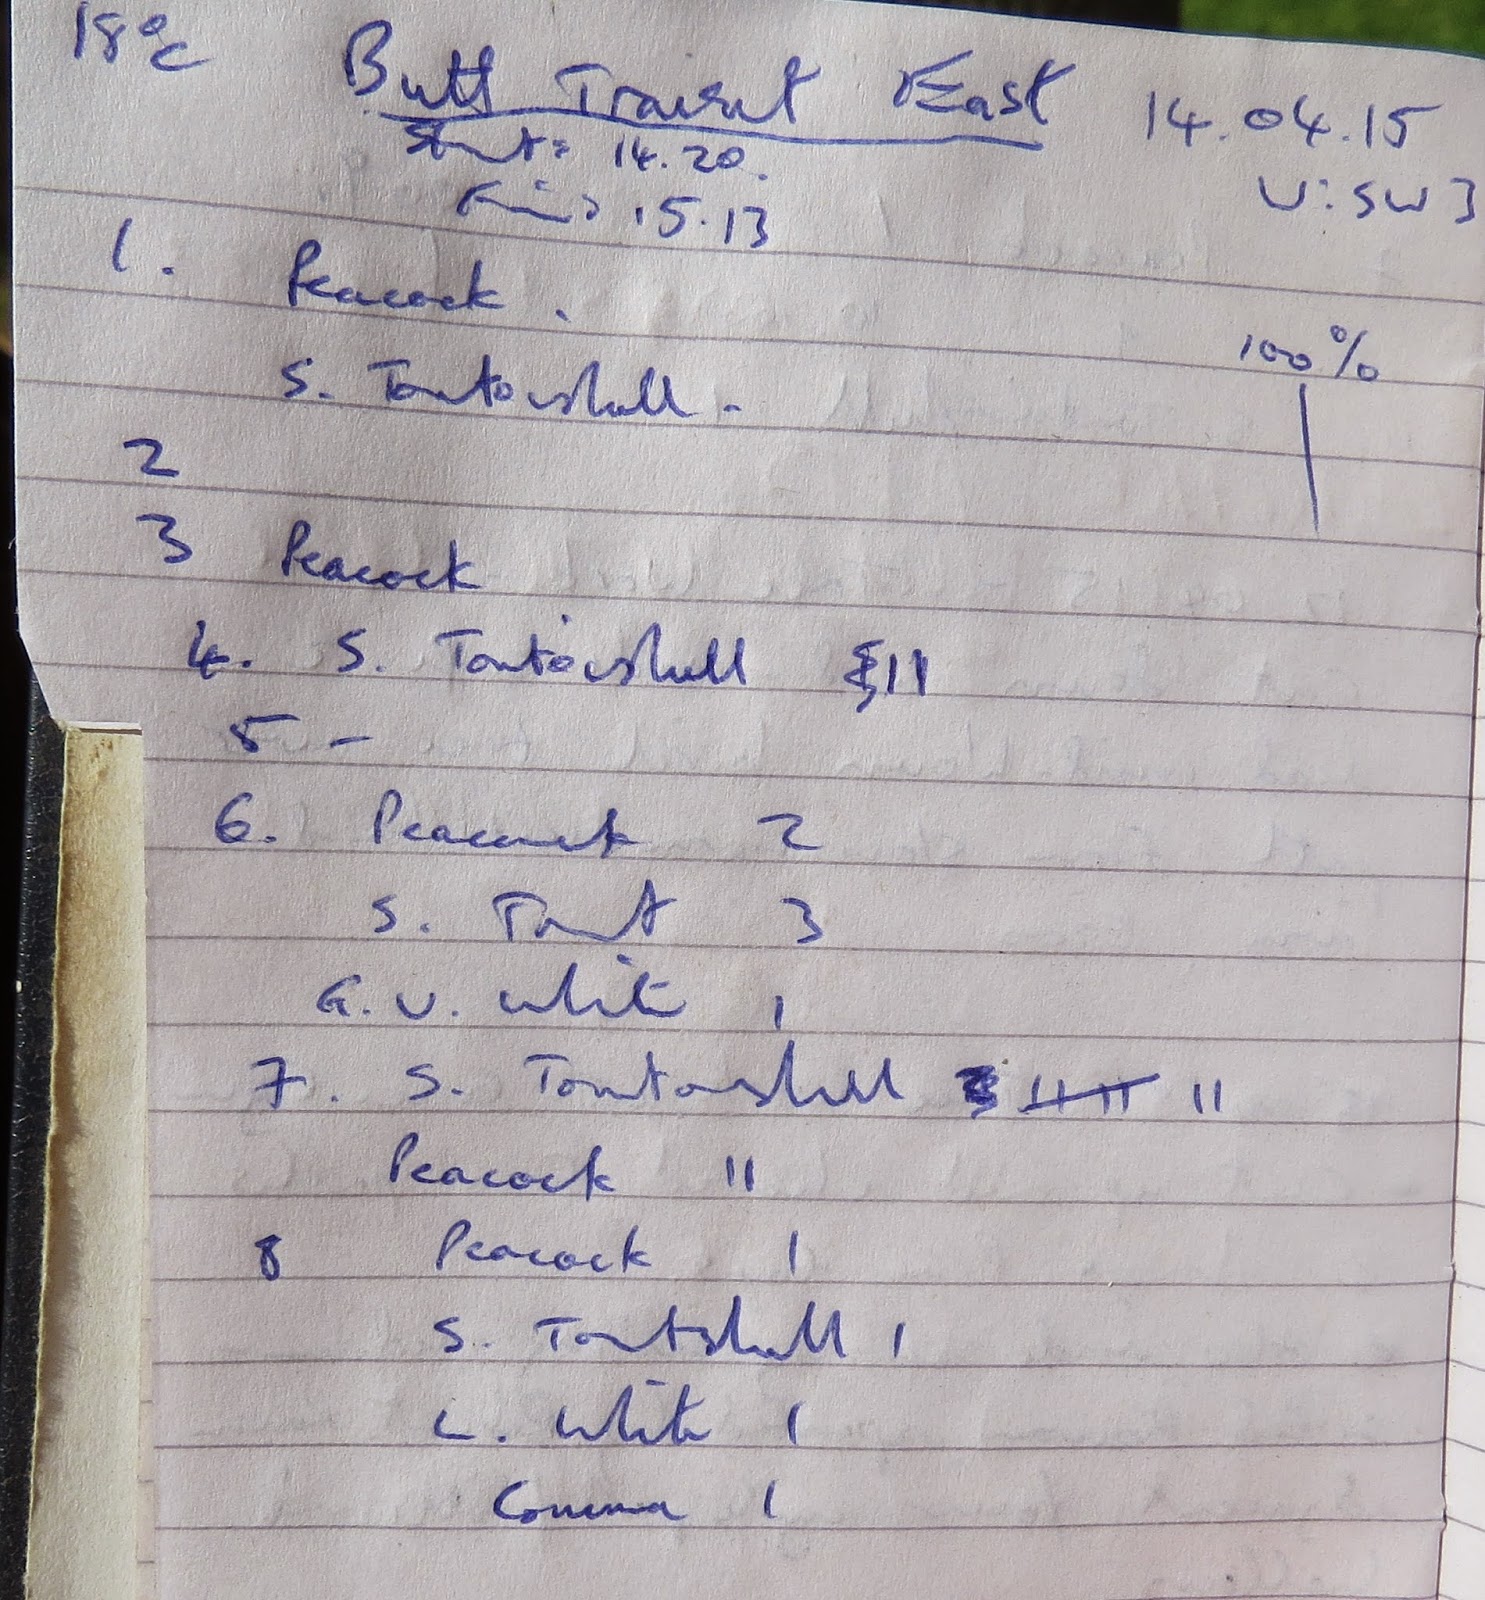 18°C Butt Transect East 14.04.15
Start = 14.20. V: SW 3
Fin = 15.13
1. Peacock.
100%
S. Tortoishell -
2
3 Peacock
4. S. Tortoishell 11
5 -
6. Peacock 2
S. Tort 3
G. V. White 1
7. S. Tortoishell 1111 11
Peacock 11
8 Peacock 1
S. Tortshell 1
L. White 1
Comma 1